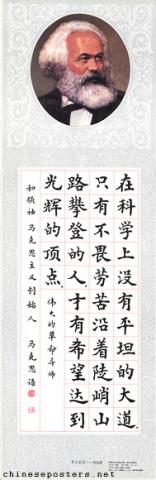 在科学上没有平坦的大道，
只有不畏劳苦沿着陡峭山
路攀登的人，才有希望达到
光辉的顶点。
伟大的革命导师
和领袖 马克思主义创始人 马克思语
chineseposters.net